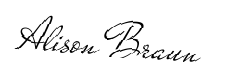 Alison Braun